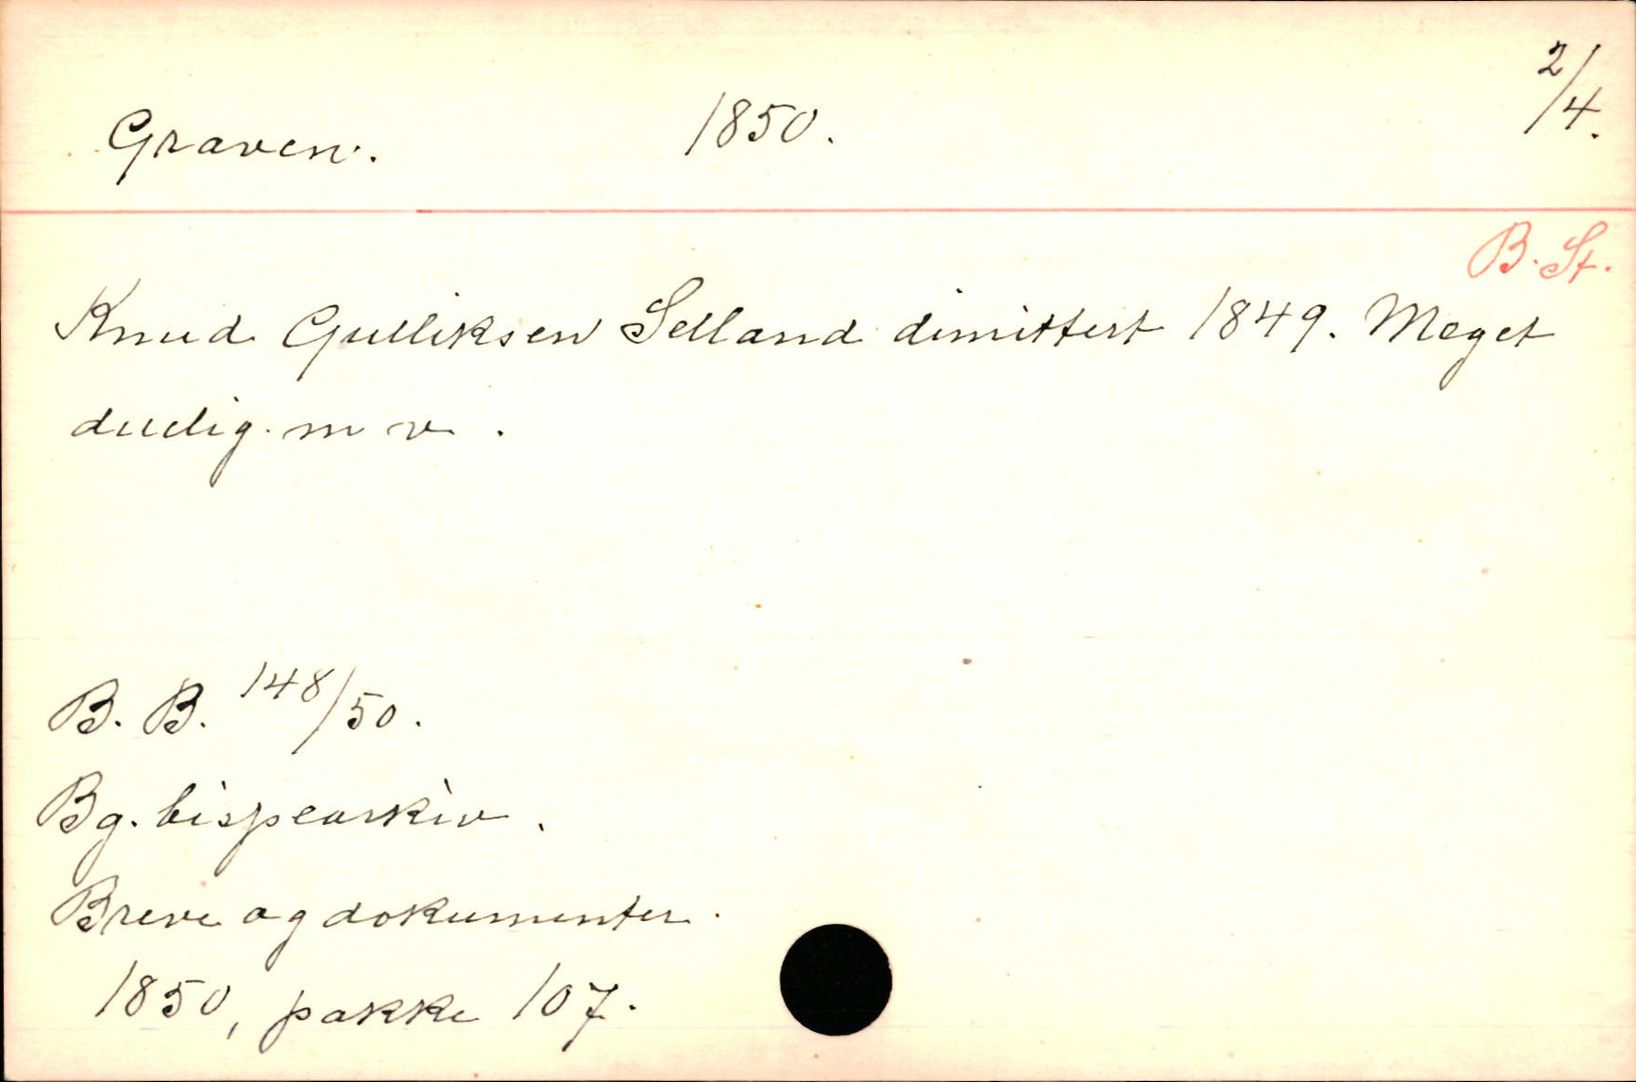 Graven. 1850. 2/4.
B. St.
Knud Gulliksen Selland dimittert 1849. Meget
dudig m v.
B. B. 148/50.
Bg. bispearkiv.
Breve og dokumenter.
1850, pakke 107.